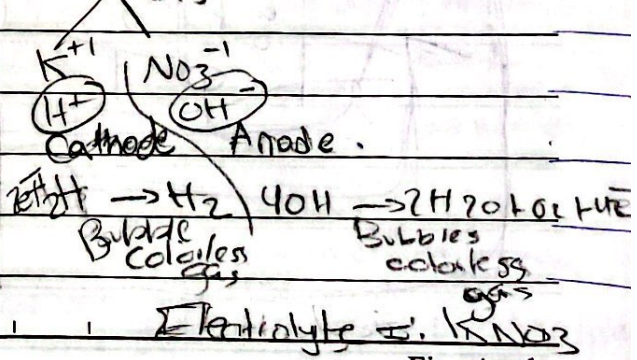 K+1 NO3-1
H+ OH-
Cathode Anode.
2e 2H → H2 4OH → 2H2O + O2 + 4e
Bubble Bubbles
colorless colorless
gas gas
Electrolyte is. KNO3